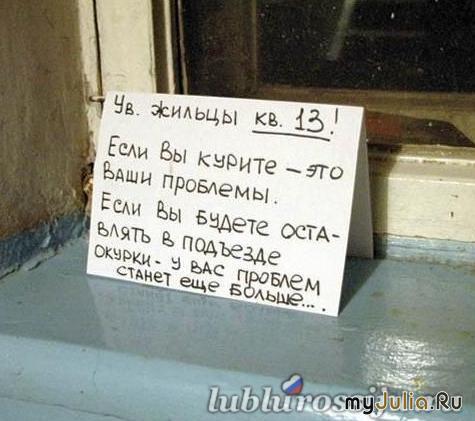 Ув. жильцы кв. 13!
Если Вы курите – это
Ваши проблемы.
Если Вы будете оста-
влять в подъезде
окурки - у вас проблем
станет еще больше....
myJulia.Ru